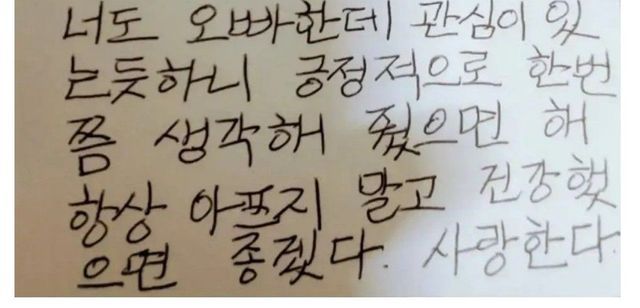 너도 오빠한데 관심이 있
는듯하니 긍정적으로 한번
쯤 생각해 줬으면 해
항상 아프지 말고 건강했
으면 좋겠다. 사랑한다.